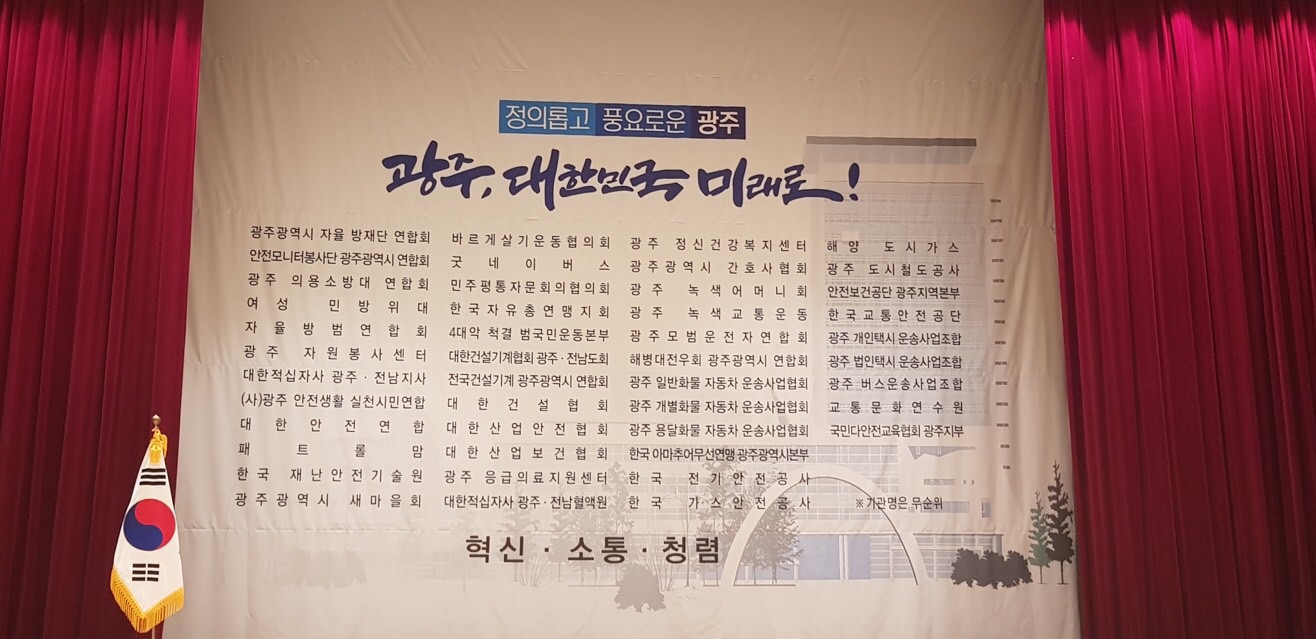 정의롭고 풍요로운 광주
광주, 대한민국 미래로!
광주광역시 자율 방재단 연합회
안전모니터봉사단 광주광역시 연합회
광주 의용소방대 연합회
여성 민방위대
자율방범연합회
광주 자원봉사센터
대한적십자사 광주·전남지사
(사)광주 안전생활 실천시민연합
대한안전연합
패트롤맘
한국 재난안전기술원
광주광역시 새마을회
바르게살기운동협의회
굿네이버스
민주평통자문회의협의회
한국자유총연맹지회
4대악 척결 범국민운동본부
대한건설기계협회 광주·전남도회
전국건설기계 광주광역시 연합회
대한건설협회
대한산업안전협회
대한산업보건협회
광주 응급의료지원센터
대한적십자사 광주·전남혈액원
광주 정신건강복지센터
광주광역시 간호사협회
광주 녹색어머니회
광주 녹색교통운동
광주모범운전자연합회
해병대전우회 광주광역시 연합회
광주 일반화물 자동차 운송사업협회
광주 개별화물 자동차 운송사업협회
광주 용달화물 자동차 운송사업협회
한국 아마추어무선연맹 광주광역시본부
한국 전기안전공사
한국 가스안전공사
해양 도시가스
광주 도시철도공사
안전보건공단 광주지역본부
한국교통안전공단
광주 개인택시 운송사업조합
광주 법인택시 운송사업조합
광주 버스운송사업조합
교통문화연수원
국민다안전교육협회 광주지부
※ 기관명은 무순위
혁신·소통·청렴